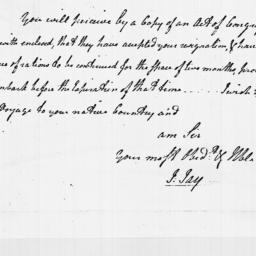 You will perceive by a Copy of an Act of Congre
with enclosed, that they have accepted your resignation, & hav
of rations to be continued for the space of two months, prov
embark before the Expiration of that time ...... I wish
Voyage to your native Country and
am Sir
Your most Obedt. & Hble
J. Jay